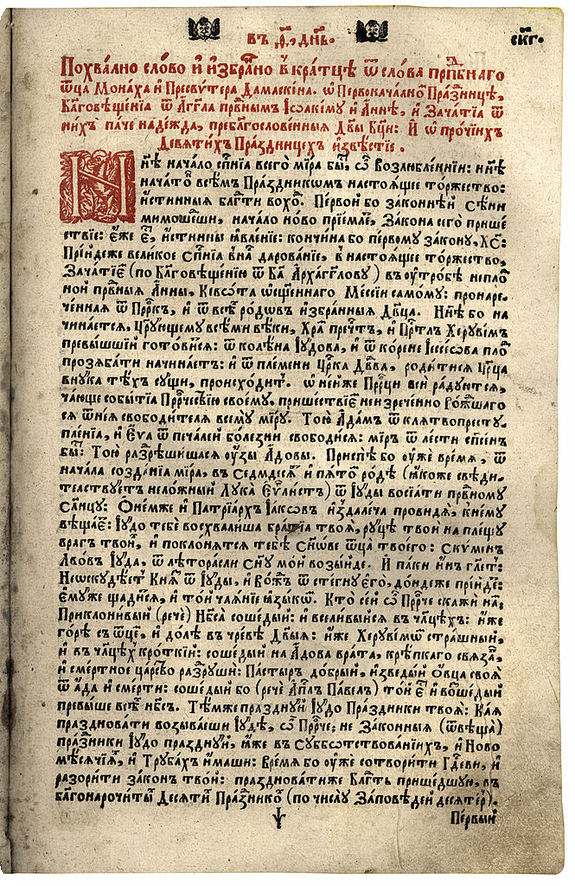 въ ,ѳ҃, дн҃ь.
ск҃г.
Похвално слово и избрано в кратцѣ ѿ слова прп҃бнаго
ѿца Монаха и Пресвѵтера Дамаскина. ѡ Первоначално Празницѣ,
Бл҃говѣщенїа ѿ Агг҃ла прв҃нымъ Іѡакїму и Аннѣ, и Зачатїа ѿ
нихъ паче надежда, преблагословенныя Дв҃ы Бц҃и: И ѡ прочїихъ
Девятихъ Праздницехъ извѣстїе.
Нн҃ѣ начало сп҃нїа всего мїра бы, ѽ Возлюбленнїи: нн҃ѣ
начато всѣмъ Праздникѡмъ настоящее торжество:
истинныя бл҃гти вхо. Первой бо законнѣй сѣни
мимошеши, начало ново прїемле, Закона сего прише
ствїе: еже е, истинны ꙗвленїе: кончина бо первому закону, Хс҃:
Прїидеже великое сп҃нїа ꙗвна дарованїе, в настоящее торжество,
Зачатїе (по Бл҃говѣщенїю ѿ Ба҃ Арха́гг҃лову) въ утробѣ непло
ной прв҃ныя Анны, Кивѡта ѡсщ҃еннаго Мессїи самому: пронаре
ченная ѿ Пррк҃ъ, и ѿ всѣ родѡвъ избранныя Дв҃ца. Нн҃ѣ бо на
чинается, Цр҃ующему всѣми вѣки, Хра пречт҃ъ, и Прт҃лъ Херувїмъ
превышшїй готовися: ѿ колѣна Іудова, и ѿ корене Іессеѡва пло
прозябати начинаетъ: и ѿ племени Цр҃ка Дв҃ва, родитися Цр҃ца
внука тѣхъ сущи, происходит. ѡ нейже Прр҃цы вси радуются,
чающе событїа Прр҃чествїю своему. пришествїе неизреченно Рождшаго
ся ѿ нея свободителя всему мїру. Тою Адамъ ѿ клятвопресту
пленїа, и Еѵа ѿ печалей болезни свободися: мїръ ѿ лести сп҃сенъ
бы: Тою разрѣшишася оузы Адовы. Приспѣ бо оуже время, ѿ
начала созданїа мїра, въ Седмдеся и пято родѣ (ꙗкоже свѣди
телствуетъ неложный Лука Еѵ҃листъ) ѿ Іуды восїати прв҃ному
Слн҃цу: Онемже и Патрїархъ Іакѡвъ издалеча провидя, к нему
вѣщае: Іудо тебѣ восхвалиша братїа твоя, руцѣ твои на плещу
врагъ твои, и поклонятся тебѣ сн҃ове ѿца твоего: скуминъ
Лвовъ Іуда, ѿ лѣторасли сн҃у мой возыйде. И паки инъ гл҃етъ:
Неѡскудѣетъ Кнзь ѿ Іуды, и Вождъ ѿ стегну его, дондеже прїиде:
Емуже щадися, и той чаянїе ꙗзыкѡ. Кто сей ѽ Прр҃че скажи на,
Приклонивый (рече) Нб҃са сошедый: и вселивыйся въ чл҃цехъ: иже
горѣ съ ѿце, и долѣ въ чревѣ Дв҃ыя: иже Херувїмѡ страшный,
и въ чл҃цехъ кроткїй: сошедый на Адова врата, крѣпкаго связа,
и смертное царство разруши: Пастырь добрый, изведый Овца своя
ѿ ада и смерти: сошедый бо (рече Ап҃лъ Павелъ) той е и возшедый
превыше всѣ нб҃съ. Тѣмже празднуй Іудо Праздники твоя: Кая
праздновати возываеши Іудѣ, ѽ Прр҃че; не Законныя (ѿвѣща)
празники Іудо празднуй, ꙗже въ Суббѡтствованїихъ, и Ново
мѣсячїя, и Трубахъ имаши: Время бо оуже сотворити Гд҃еви, и
разорити законъ твой: праздноватиже Бл҃гть пришедшую, въ
бл҃гонарочиты Десяти Празнико (по числу Заповѣдей десятер).
Первый